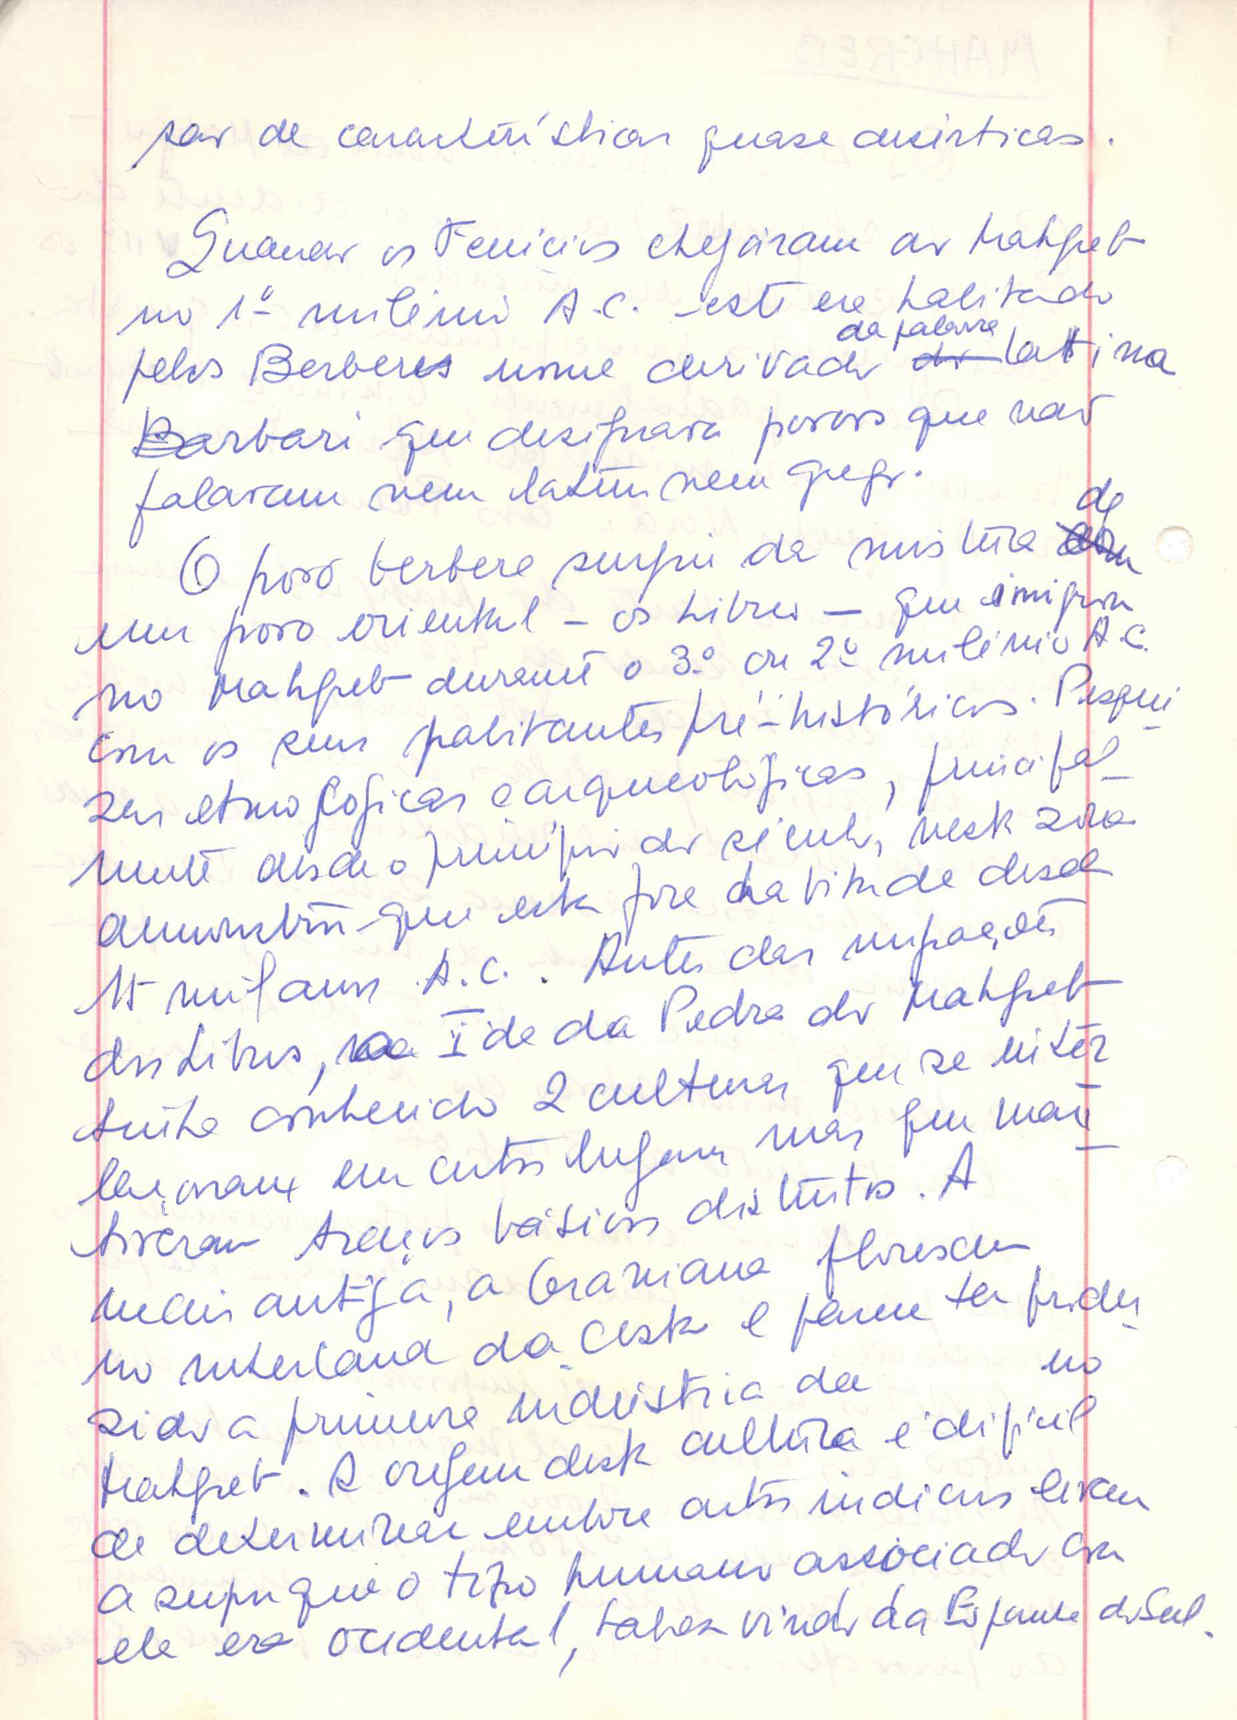 são de características quase desérticas.
Quando os Fenicios chegáram ao Mahgreb
no 1º milénio A.C. este era habitado
pelos Berberes nome derivado da palavra latina
Barbari que designava povos que não
falavam nem latim nem grego.
O povo berbere surgiu da mistura de
um povo oriental – os Libios – que imigrou
no Mahgreb durante o 3º ou 2º milénio A.C.
com os seus habitantes pré-históricos. Pesqui
sas etnológicas e arqueológicas, principal_
mente desde o princípio do século, nesta zona
demonstram que esta fora habitada desde
15 mil anos A.C. . Antes das migrações
dos Libios, a Idade da Pedra do Mahgreb
tinha conhecido 2 culturas que se inter
lacionaram em certos lugares mas que man
tiveram traços básicos distintos. A
mais antiga, a Oraniana floresceu
no interland da costa e parece ter produ_
zido a primeira indústria da no
Mahgreb. A origem desta cultura é dificil
de determinar embora certos indicios levem
a supor que o tipo humano associado com
ela era ocidental, talvez vindo da Espanha do Sul.